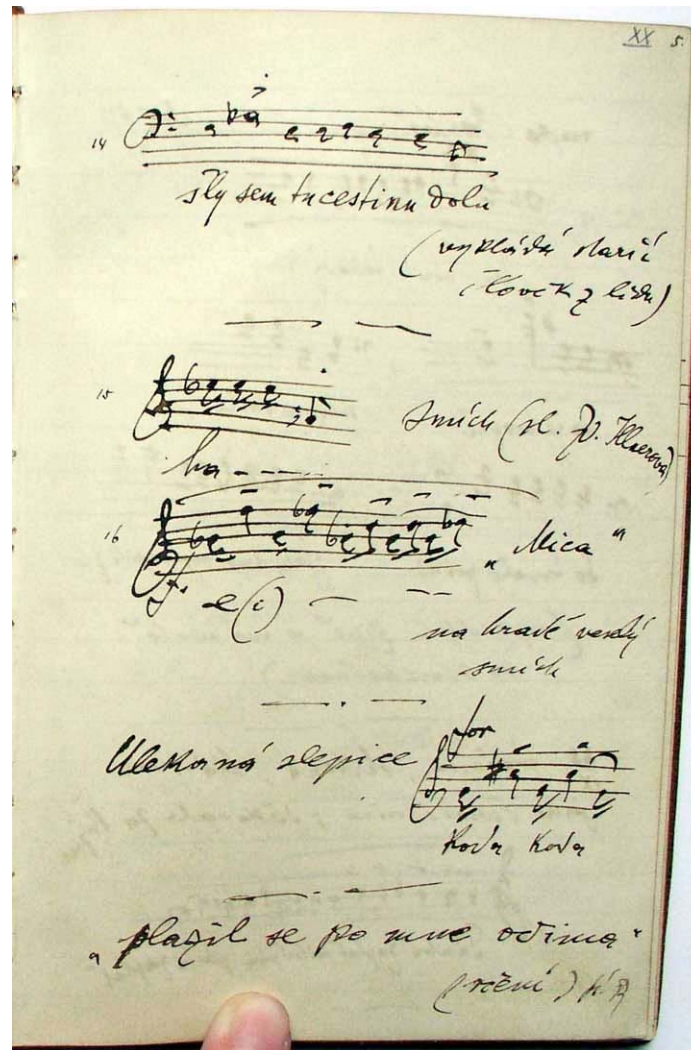 XX 5.
14
šly sem tu cestinu dolu
(vykládá starší
človek z lidu)
15
smích (sl.
ha - - - -
16
e(i) — - -
„Mica"
na hradě veselý
smích
Ulekaná slepice
for
Koda Koda
„plazil se po mne očima"
(rčení)